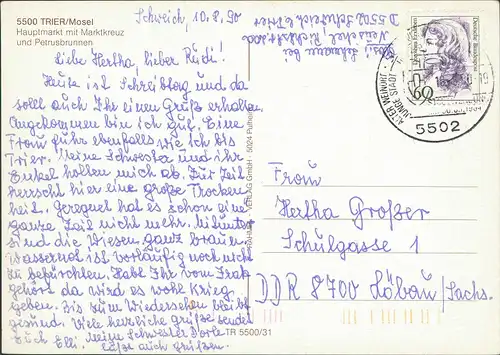 5500 TRIER/Mosel
Hauptmarkt mit Marktkreuz
und Petrusbrunnen
Schweich, 10.8.90
Liebe Hertha, lieber Rudi!
Heute ist Schreibtag und da
soll auch Ihr einen Gruß erhalten.
Angekommen bin ich gut. Eine
Frau fuhr ebenfalls wie ich bis
Trier. Meine Schwester und ihr
Enkel holten mich ab. Zur Zeit
herrscht hier eine große Trocken
heit. Geregnet hat es schon eine
ganze Zeit nicht mehr. Mitunter
sind die Wiesen ganz braun.
Wassernot ist vorläufig noch nicht
zu befürchten. Habt Ihr vom Irak
gehört da wird es wohl Krieg
geben. Bis zum Wiedersehen bleibt
gesund. Viele herzliche Grüße sendet
Euch Elli. Meine Schwester Dorle
läßt auch grüßen.
D 5502 Schweich b Trier
VERLAG GmbH · 5024 Pulheim
TR 5500/31
Deutsche Bundespost
60
ALTER WEINORT
JUNGE STADT
5502
Frau
Hertha Großer
Schulgasse 1
DDR 8700 Löbau/Sachs.